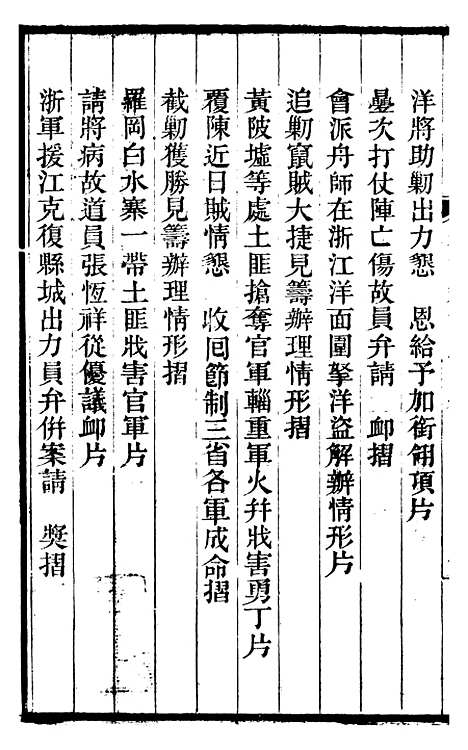 洋將助勦出力懇　恩給予加銜翎項片
疊次打仗陣亡傷故員弁請　卹摺
會派舟師在浙江洋面圍拏洋盜解辦情形片
追勦竄賊大捷見籌辦理情形摺
黃陂墟等處土匪搶奪官軍輜重軍火幷戕害勇丁片
覆陳近日賊情懇　收回節制三省各軍成命摺
截勦獲勝見籌辦理情形摺
羅岡白水寨一帶土匪戕害官軍片
請將病故道員張恆祥從優議卹片
浙軍援江克復縣城出力員弁倂案請　獎摺